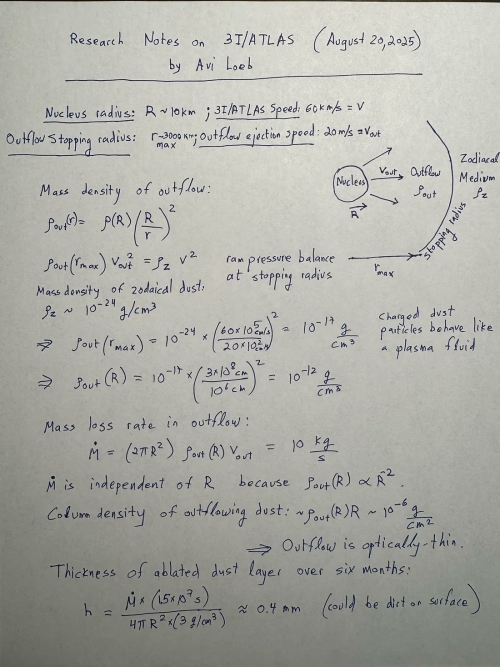 Research Notes on 3I/ATLAS (August 20, 2025)
by Avi Loeb
Nucleus radius: R ~ 10 km ; 3I/ATLAS Speed: 60 km/s = V
Outflow Stopping radius: r_max ~3000 km; Outflow ejection speed: 20 m/s = V_out
Nucleus
R
V_out
Outflow
ρ_out
Zodiacal
Medium
ρ_z
stopping radius
r_max
Mass density of outflow:
ρ_out(r) = ρ(R) (R/r)^2
ρ_out(r_max) V_out^2 = ρ_z V^2 ram pressure balance
at stopping radius
Mass density of zodaical dust:
ρ_z ~ 10^-24 g/cm^3
⇒ ρ_out(r_max) = 10^-24 × (60×10^5 cm/s / 20×10^2 cm/s)^2 = 10^-17 g/cm^3
charged dust
particles behave like
a plasma fluid
⇒ ρ_out(R) = 10^-17 × (3×10^8 cm / 10^6 cm)^2 = 10^-12 g/cm^3
Mass loss rate in outflow:
Ṁ = (2πR^2) ρ_out(R) V_out = 10 kg/s
Ṁ is independent of R because ρ_out(R) ∝ R^-2.
Column density of outflowing dust: ~ρ_out(R)R ~ 10^-6 g/cm^2
⇒ Outflow is optically-thin.
Thickness of ablated dust layer over six months:
h = Ṁ × (1.5×10^7 s) / 4πR^2×(3 g/cm^3) ≈ 0.4 mm (could be dirt on surface)